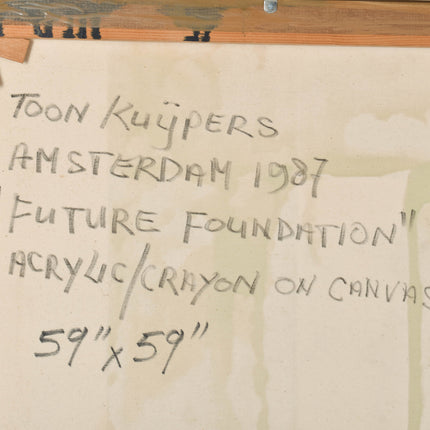 TOON KUŸPERS
AMSTERDAM 1987
"FUTURE FOUNDATION"
ACRYLIC/CRAYON ON CANVAS
59" x 59"